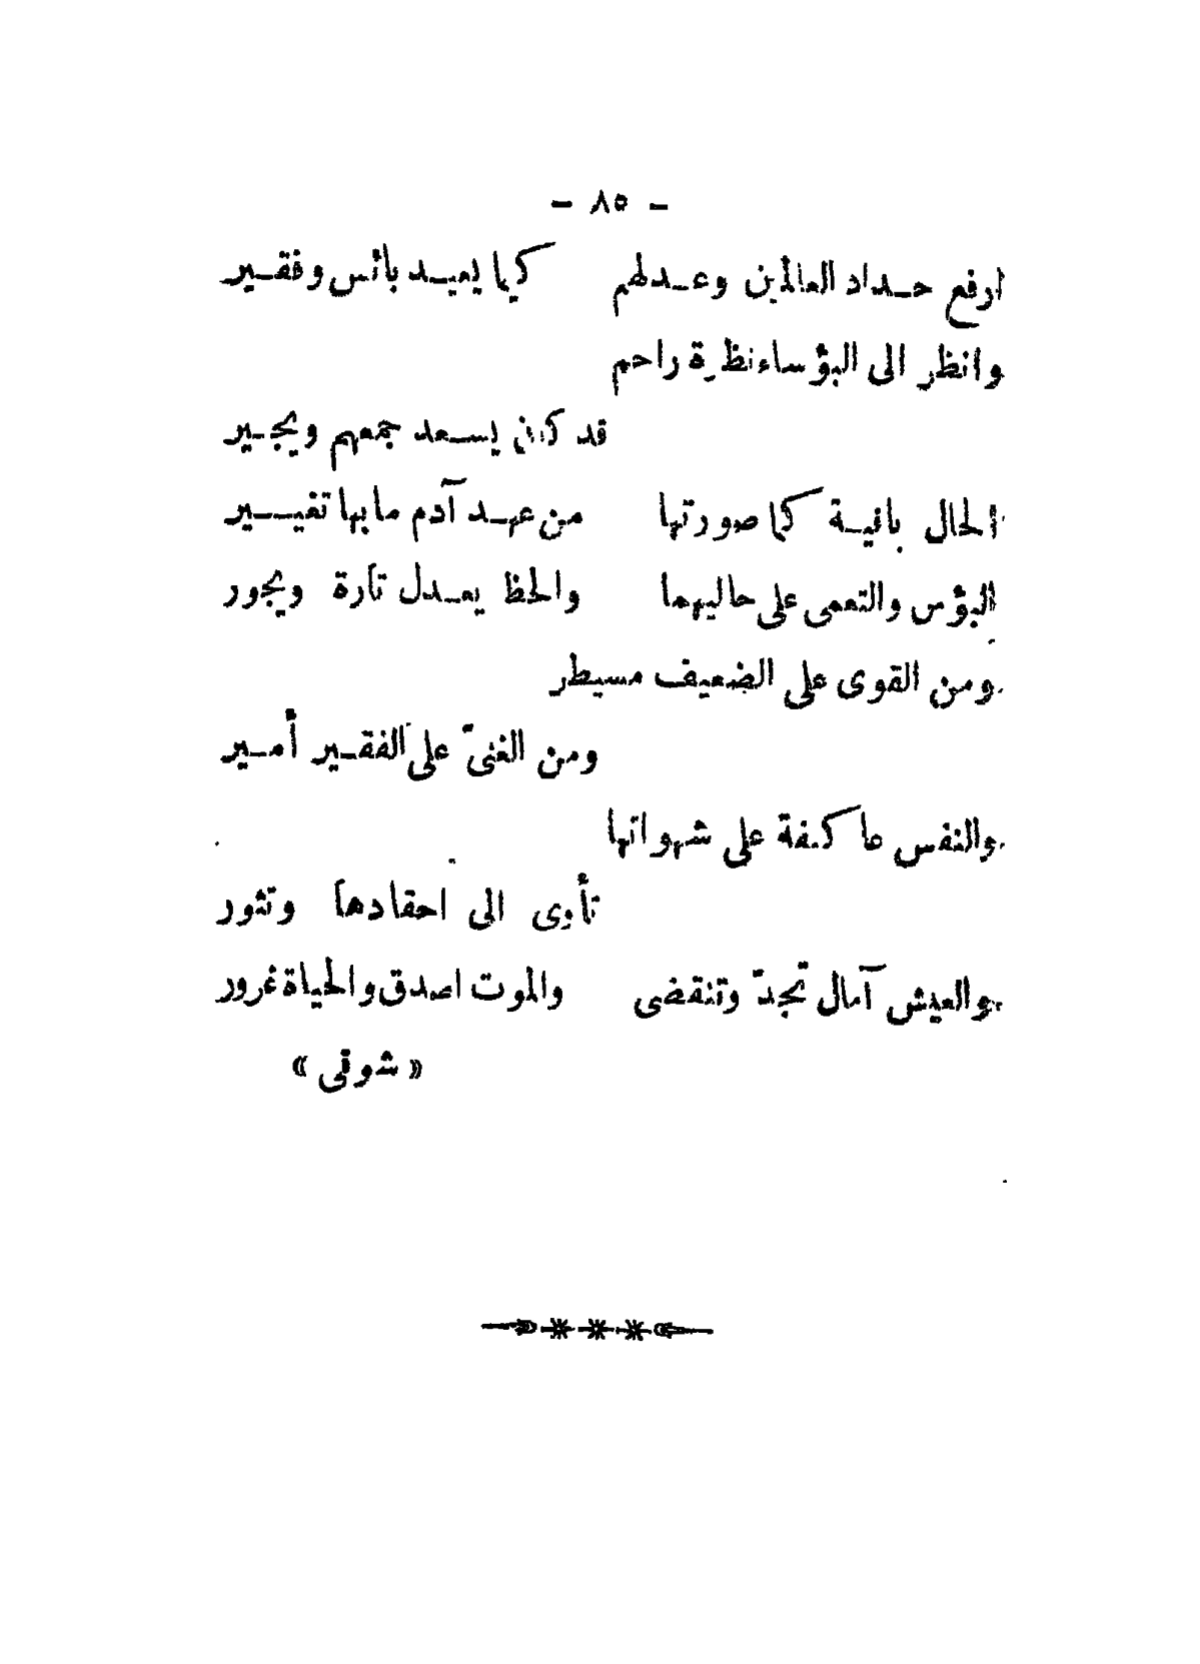 - ٨٥ -
ارفع حداد العالمين وعدلهم كيما يعيد بائس وفقير
وانظر الى البؤساء نظرة راحم
قد كان يسعد جمعهم ويجير
الحال باقية كما صورتها من عهد آدم ما بها تغيير
البؤس والنعمى على حاليهما والحظ يعدل تارة ويجور
ومن القوى على الضعيف مسيطر
ومن الغنىّ على الفقير أمير
والنفس عاكفة على شهواتها
تأوى الى احقادها وتثور
والعيش آمال تجدّ وتنقضى والموت اصدق والحياة غرور
« شوقى »